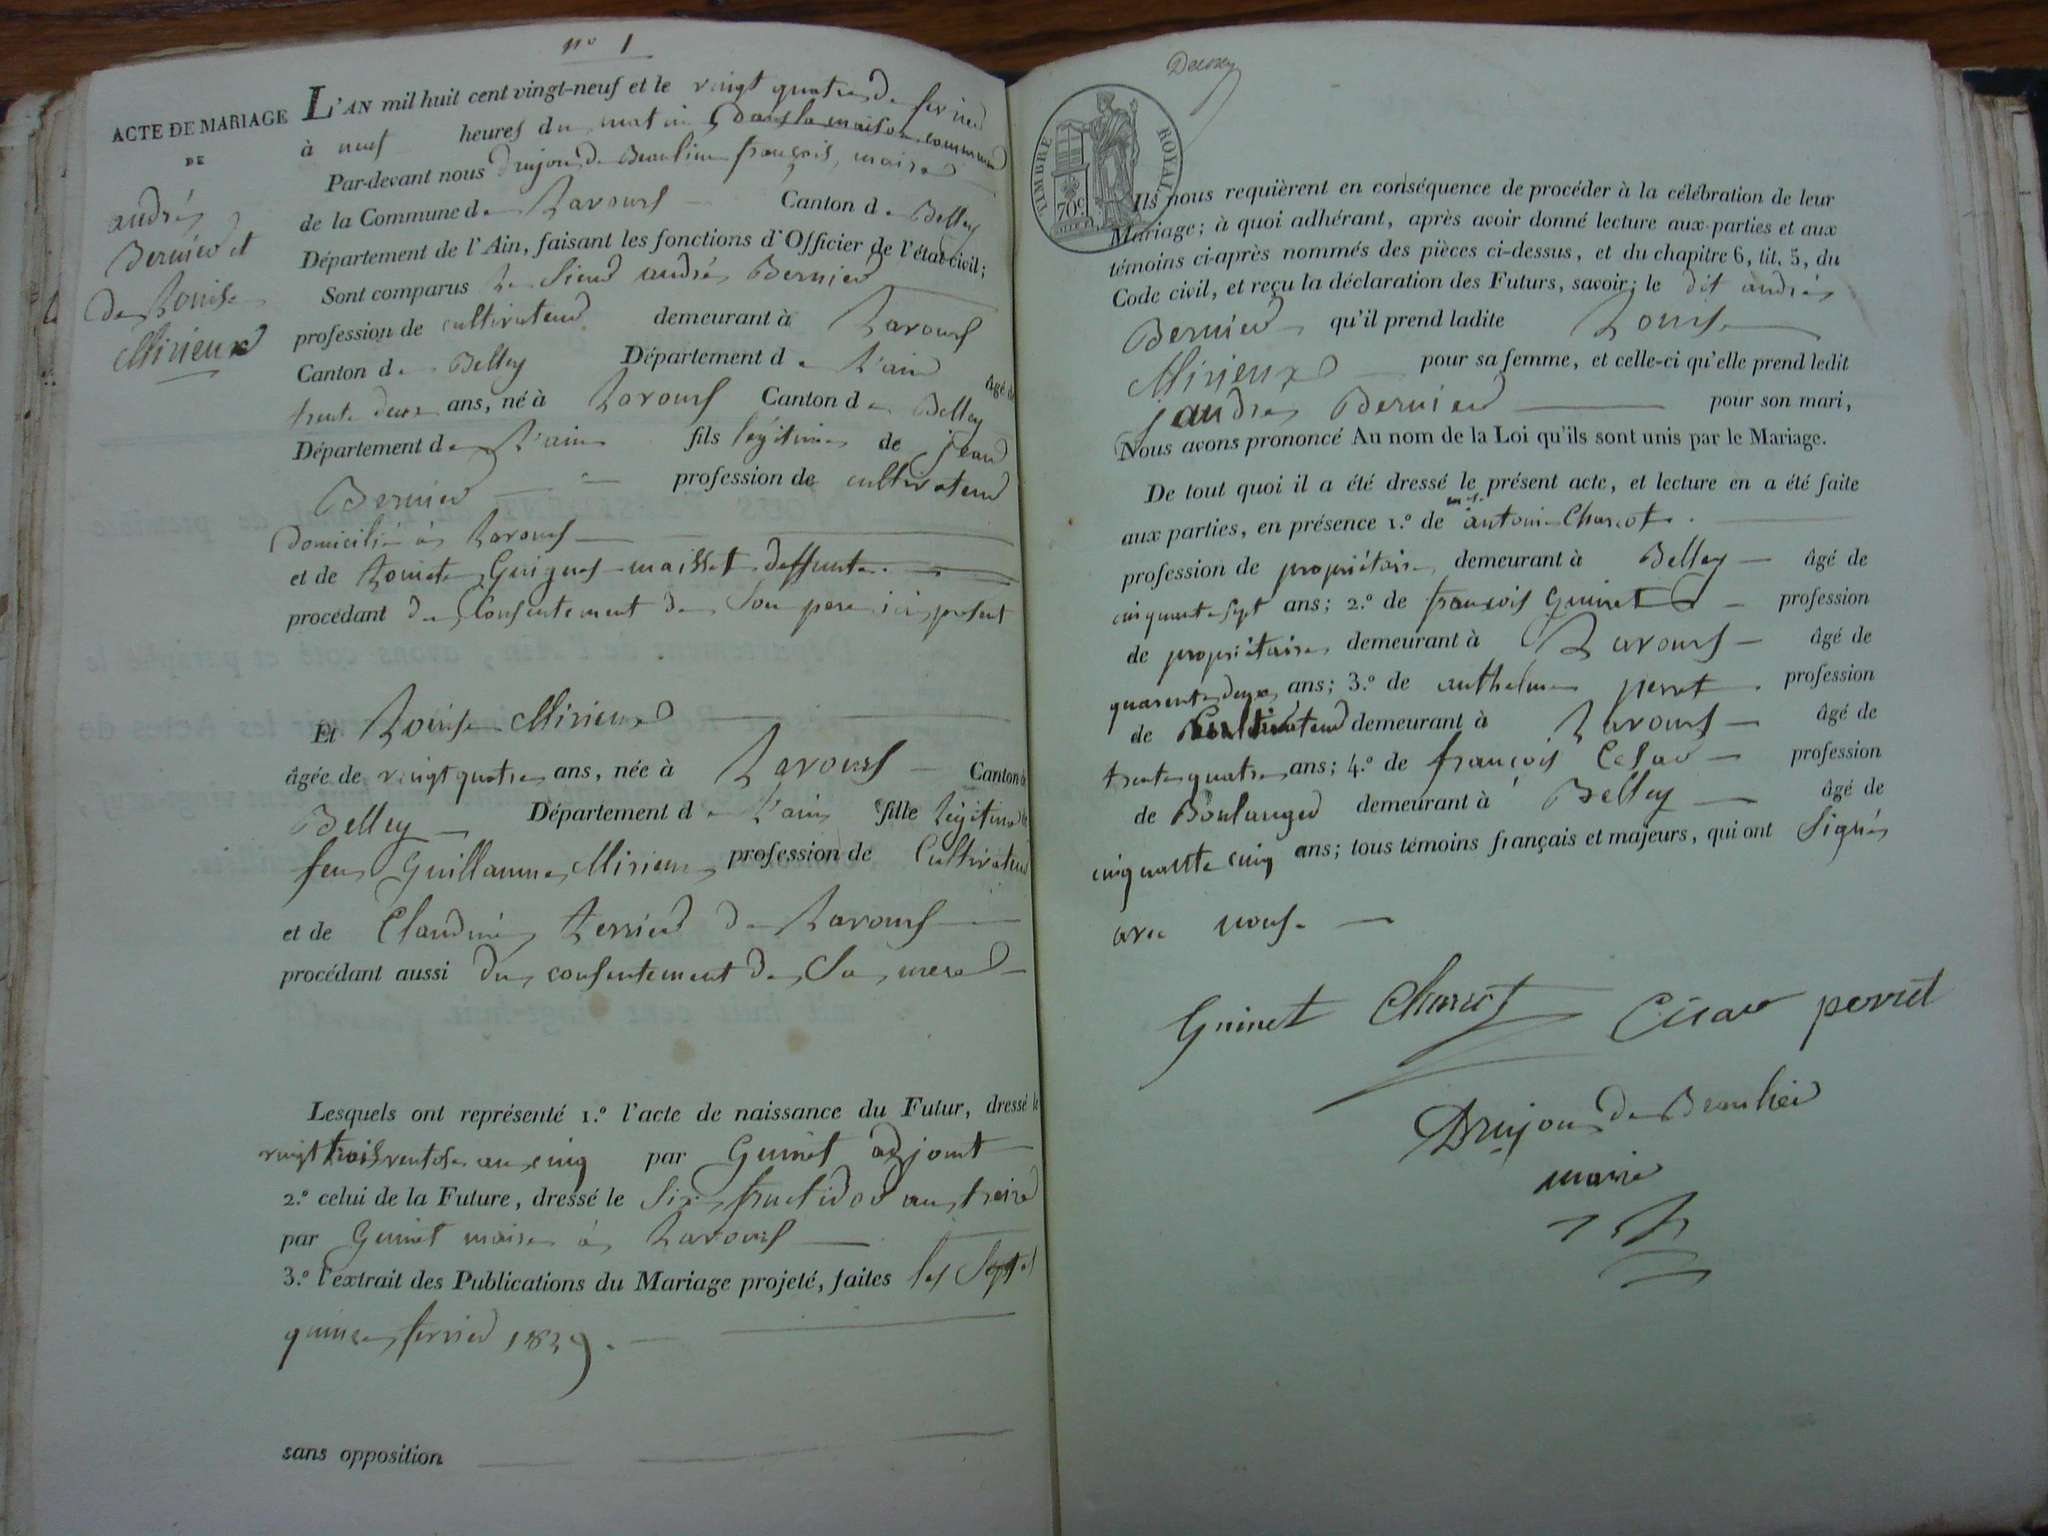 nº 1
ACTE DE MARIAGE
DE
andré
Bernier et
de Louise
Mirieux
L'AN mil huit cent vingt-neuf et le vingt quatre de fevrier
à neuf heures du matin dans la maison commune
Par-devant nous Drujon de Beaulieu françois, maire
de la Commune de Lavours Canton de Belley
Département de l'Ain, faisant les fonctions d'Officier de l'état civil;
Sont comparus Le Sieur andré Bernier
profession de cultivateur demeurant à Lavours
Canton de Belley Département de L'ain âgé de
trente deux ans, né à Lavours Canton de Belley
Département de L'ain fils légitime de jean
Bernier profession de cultivateur
domicilié à Lavours
et de Guigues maisset deffunte
procédant du Consentement de Son pere ici present
Et Louise Mirieux
âgée de vingt quatre ans, née à Lavours Canton de
Belley Département de L'ain fille légitime de
feu Guillaume Mirieux profession de Cultivateur
et de Claudine Terrier de Lavours
procédant aussi du consentement de Sa mere
Lesquels ont représenté 1.º l'acte de naissance du Futur, dressé le
vingt trois ventose an cinq par Guinet adjoint
2.º celui de la Future, dressé le Six fructidor an treize
par Guinet maire à Lavours
3.º l'extrait des Publications du Mariage projeté, faites les Sept et
quinze fevrier 1829.
sans opposition
TIMBRE ROYAL
70c
Ils nous requièrent en conséquence de procéder à la célébration de leur
Mariage; à quoi adhérant, après avoir donné lecture aux parties et aux
témoins ci-après nommés des pièces ci-dessus, et du chapitre 6, tit. 5, du
Code civil, et reçu la déclaration des Futurs, savoir; le dit andré
Bernier qu'il prend ladite Louise
Mirieux pour sa femme, et celle-ci qu'elle prend ledit
andré Bernier pour son mari,
Nous avons prononcé Au nom de la Loi qu'ils sont unis par le Mariage.
De tout quoi il a été dressé le présent acte, et lecture en a été faite
aux parties, en présence 1.º de antoine Charcot
profession de propriétaire demeurant à Belley âgé de
cinquante sept ans; 2.º de françois Guinet profession
de propriétaire demeurant à Lavours âgé de
quarente deux ans; 3.º de anthelme perret profession
de Cultivateur demeurant à Lavours âgé de
trente quatre ans; 4.º de françois César profession
de Boulanger demeurant à Belley âgé de
cinquante cinq ans; tous témoins français et majeurs, qui ont Signés
avec nous.
Guinet Charcot César perret
Drujon de Beaulieu
maire